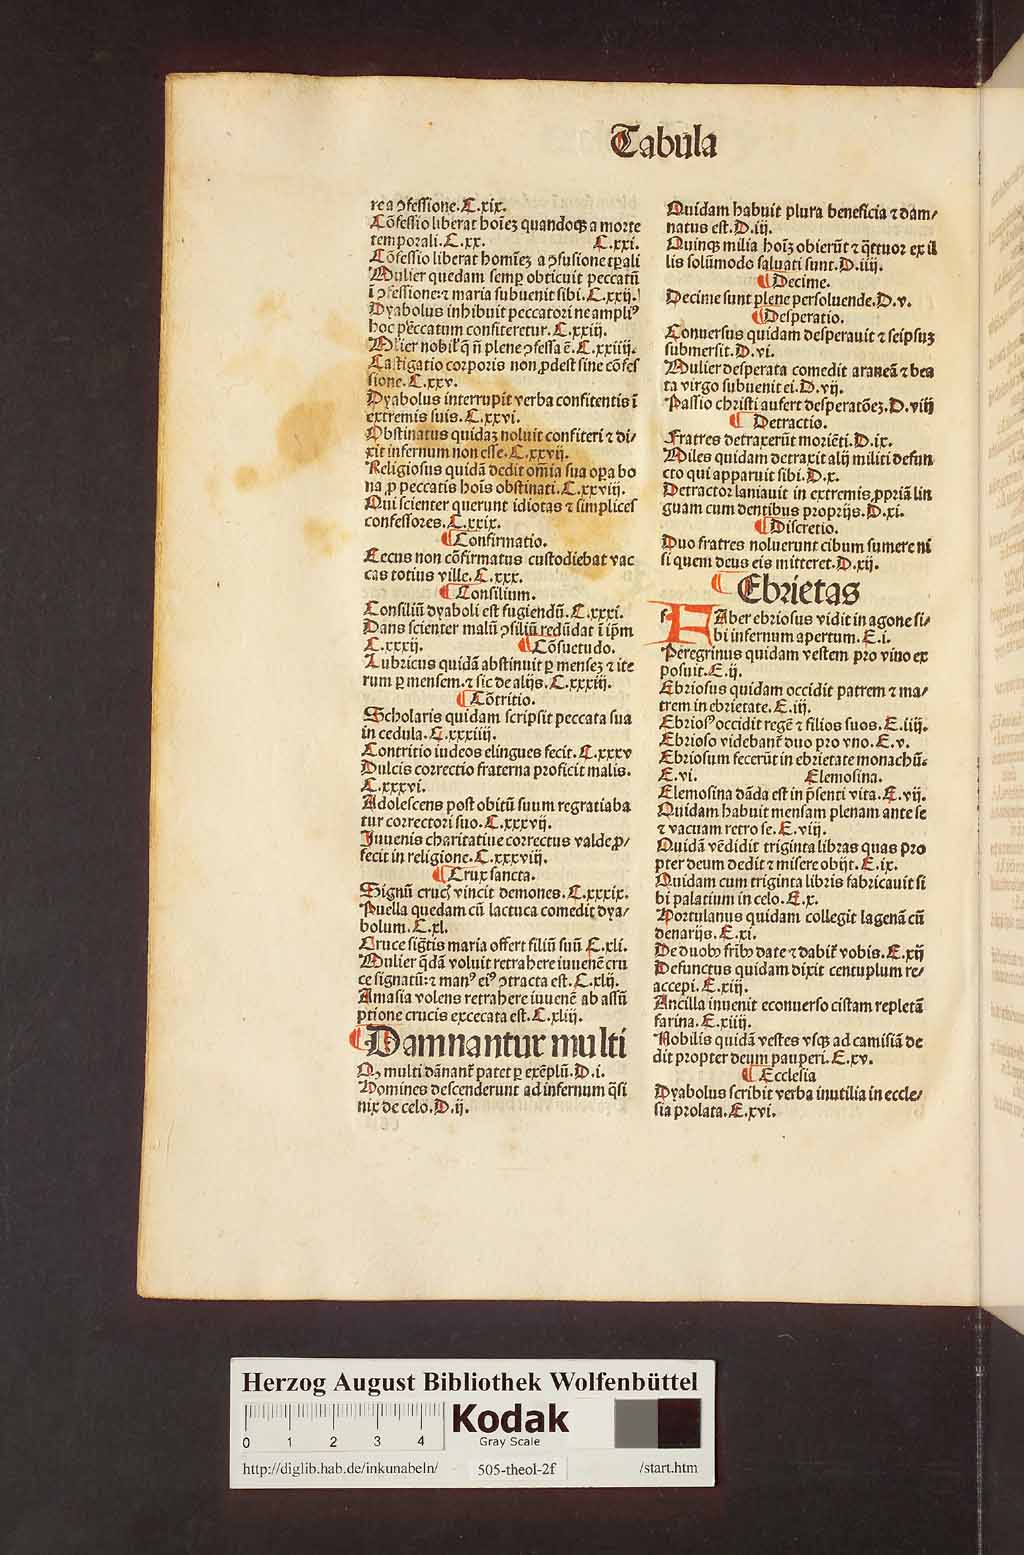 Tabula
re a ꝯfessione. C.xix.
Cōfessio liberat hoīeꝫ quandoqꝫ a morte
temporali. C.xx. C.xxi.
Cōfessio liberat homīeꝫ a ꝯfusione tp̄ali
Mulier quedam semꝑ obticuit peccatū
ī ꝯfessione: ⁊ maria subuenit sibi. C.xxij.
Dyabolus inhibuit peccatori ne ampliꝰ
hoc peccatum confiteretur. C.xxiij.
Mlier nobil' q̄ n̄ plene ꝯfessa ē. C.xxiiij.
Castigatio corporis non ꝓdest sine cōfes
sione. C.xxv.
Dyabolus interrupit verba confitentis ī
extremis suis. C.xxvi.
Obstinatus quidaꝫ noluit confiteri ⁊ di⸗
xit infernum non esse. C.xxvij.
Religiosus quidā dedit om̄ia sua oꝑa bo
na ꝓ peccatis hoīs obstinati. C.xxviij.
Qui scienter querunt idiotas ⁊ simplices
confessores. C.xxix.
¶ Confirmatio.
Cecus non cōfirmatus custodiebat vac
cas totius ville. C.xxx.
¶ Consilium.
Consiliū dyaboli est fugiendū. C.xxxi.
Dans scienter malū ꝯsiliū redūdat ī ip̄m
C.xxxij. ¶ Cōsuetudo.
Lubricus quidā abstinuit ꝑ menseꝫ ⁊ ite
rum ꝑ mensem. ⁊ sic de alijs. C.xxxiij.
¶ Cōtritio.
Scholaris quidam scripsit peccata sua
in cedula. C.xxxiiij.
Contritio iudeos elingues fecit. C.xxxv
Dulcis correctio fraterna proficit malis.
C.xxxvi.
Adolescens post obitū suum regratiaba
tur correctori suo. C.xxxvij.
Iuuenis charitatiue correctus valde ꝓ⸗
fecit in religione. C.xxxviij.
¶ Crux sancta.
Signū cruc̄ vincit demones. C.xxxix.
Puella quedam cū lactuca comedit dya⸗
bolum. C.xl.
Cruce siḡtis maria offert filiū suū C.xli.
Mulier q̄dā voluit retrahere iuuenē cru
ce signatū: ⁊ manꝰ eiꝰ ꝯtracta est. C.xlij.
Amasia volens retrahere iuuenē ab assū
ptione crucis excecata est. C.xliij.
¶ Damnantur multi
Qꝫ multi dānant' patet ꝑ exēplū. D.i.
Homines descenderunt ad infernum q̄si
nix de celo. D.ij.
Quidam habuit plura beneficia ⁊ dam⸗
natus est. D.iij.
Quinqꝫ milia hoīꝫ obierūt ⁊ q̄ttuor ex il
lis solūmodo saluati sunt. D.iiij.
¶ Decime.
Decime sunt plene persoluende. D.v.
¶ Desperatio.
Conuersus quidam desperauit ⁊ seipsuꝫ
submersit. D.vi.
Mulier desperata comedit araneā ⁊ bea
ta virgo subuenit ei. D.vij.
Passio christi aufert desperatōeꝫ. D.viij
¶ Detractio.
Fratres detraxerūt moriēti. D.ix.
Miles quidam detraxit alij militi defun
cto qui apparuit sibi. D.x.
Detractor laniauit in extremis ꝓpriā lin
guam cum dentibus proprijs. D.xi.
¶ Discretio.
Duo fratres noluerunt cibum sumere ni
si quem deus eis mitteret. D.xij.
¶ Ebrietas
f FAber ebriosus vidit in agone si⸗
bi infernum apertum. E.i.
Peregrinus quidam vestem pro vino ex
posuit. E.ij.
Ebriosus quidam occidit patrem ⁊ ma⸗
trem in ebrietate. E.iij.
Ebriosꝰ occidit regē ⁊ filios suos. E.iiij.
Ebrioso videbant' duo pro vno. E.v.
Ebriosum fecerūt in ebrietate monachū:
E.vi. Elemosina.
Elemosina dāda est in p̄senti vita. E.vij.
Quidam habuit mensam plenam ante se
⁊ vacuam retro se. E.viij.
Quidā vēdidit triginta libras quas pro
pter deum dedit ⁊ misere obijt. E.ix.
Quidam cum triginta libris fabricauit si
bi palatium in celo. E.x.
Hortulanus quidam collegit lagenā cū
denarijs. E.xi.
De duobꝫ fr̄ibꝫ date ⁊ dabit' vobis. E.xij
Defunctus quidam dixit centuplum re⸗
accepi. E.xiij.
Ancilla inuenit econuerso cistam repletā
farina. E.xiiij.
Nobilis quidā vestes vsqꝫ ad camisiā de
dit propter deum pauperi. E.xv.
¶ Ecclesia
Dyabolus scribit verba inutilia in eccle⸗
sia prolata. E.xvi.
Herzog August Bibliothek Wolfenbüttel
0 1 2 3 4
Kodak
Gray Scale
http://diglib.hab.de/inkunabeln/ 505-theol-2f /start.htm